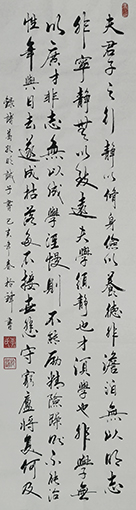 夫君子之行靜以脩身儉以養德非澹泊無以明志
非寧靜無以致遠夫學須靜也才須學也非學無
以廣才非志無以成學淫慢則不能励精險躁則不能治
性年與日去遂成枯落多不接世悲守窮廬將復何及
錄諸葛孔明誡子書己亥年春